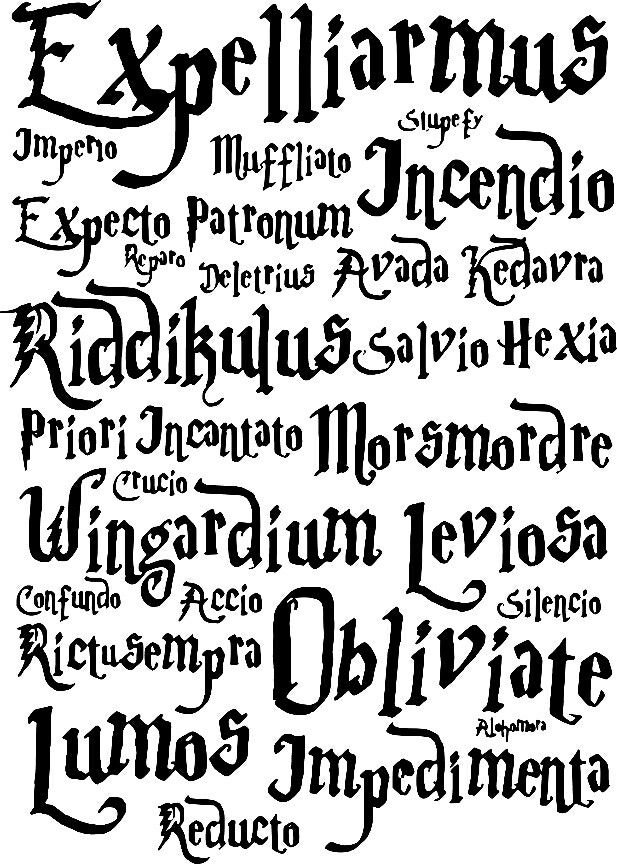 Expelliarmus
Stupefy
Imperio Muffliato Incendio
Expecto Patronum
Reparo Deletrius Avada Kedavra
Riddikulus Salvio Hexia
Priori Incantato Morsmordre
Crucio
Wingardium Leviosa
Confundo Accio Silencio
Rictusempra Obliviate
Alohamora
Lumos Impedimenta
Reducto